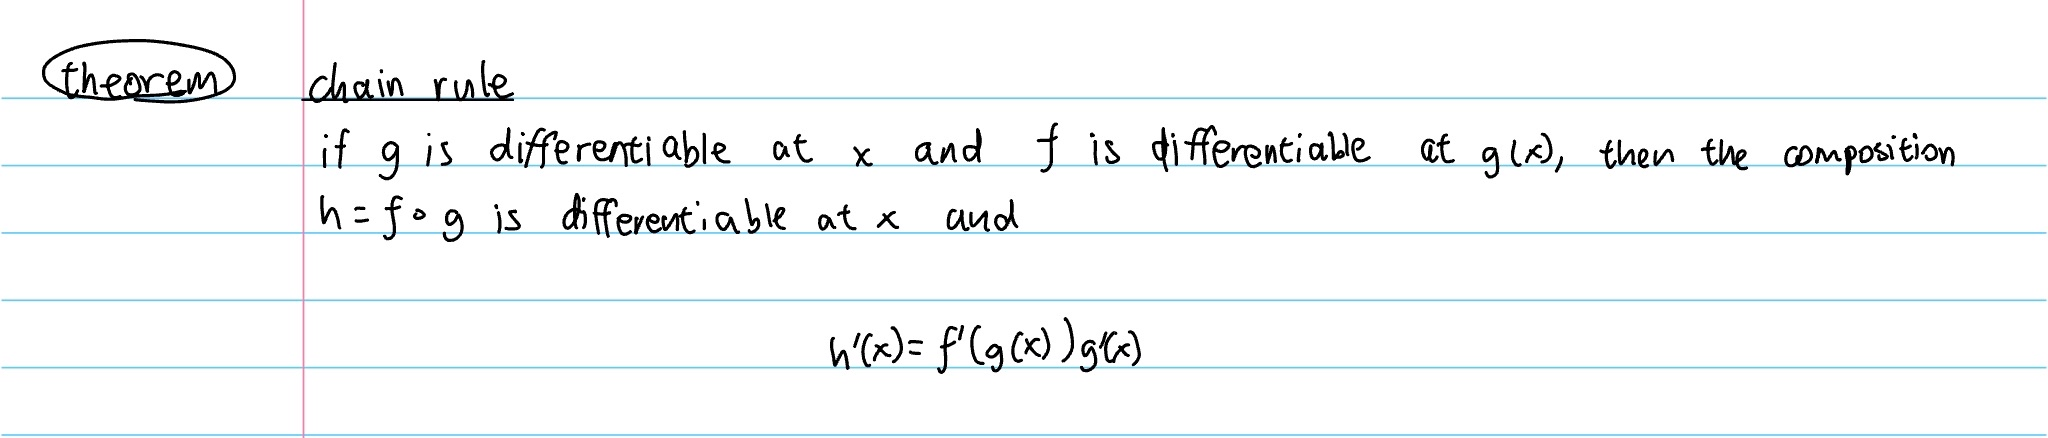 theorem chain rule
if g is differentiable at x and f is differentiable at g(x), then the composition
h = f ∘ g is differentiable at x and
h'(x) = f'(g(x))g'(x)